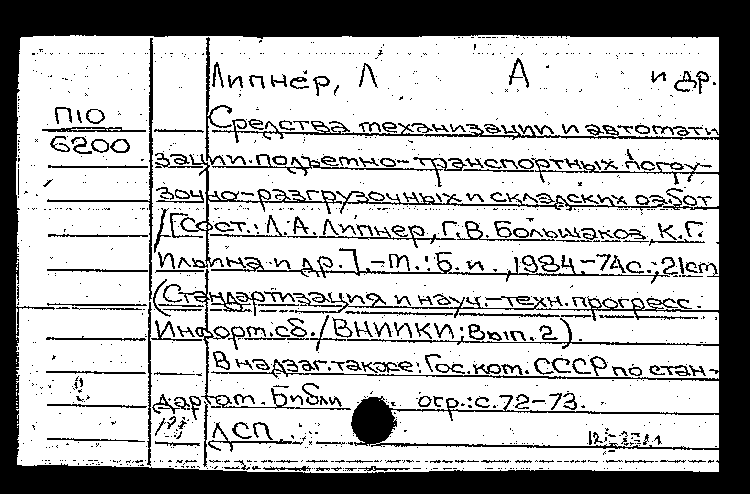 Липнер, Л А и др.
П10
6200
Средства механизации и автомати
зации подъемно-транспортных погру-
зочно-разгрузочных и складских работ
/[Сост.: Л.А.Липнер, Г.В.Большаков, К.Г.
Ильина и др.].-М.:Б.и.,1984.-74с.;21см
(Стандартизация и науч.-техн.прогресс.
Информ.сб./ВНИИКИ;Вып.2).
В надзаг.также: Гос.ком.СССР по стан-
дартам. Библи огр.:с.72-73.
ДСП